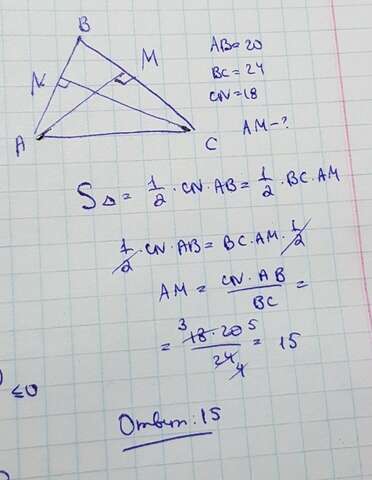 B
N M
A C
AB=20
BC=24
CN=18
AM-?
S△ = 1/2 · CN · AB = 1/2 · BC · AM
1/2 · CN · AB = BC · AM · 1/2
AM = CN · AB / BC =
= 3 18 · 20 5 / 24 4 = 15
≤0
Ответ: 15